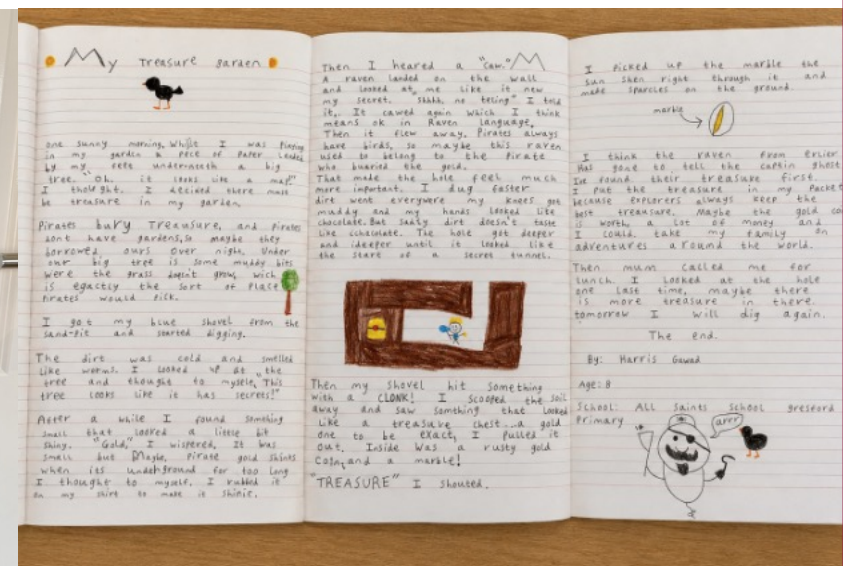 My treasure garden
one sunny morning, Whilst I was Playing
in my garden a peice of Paper landed
by my feet underneath a big
tree. "Oh, it looks like a map."
I thought. I decided there must
be treasure in my garden.
Pirates bury Treausure, and pirates
dont have gardens, so maybe they
borrowed ours over night. Under
our big tree is some muddy bits
were the grass doesn't grow, wich
is egactsy the sort of Place
Pirates would Pick.
I got my blue shovel from the
sand-pit and started digging.
The dirt was cold and smelled
like worms. I looked up at the
tree and thought to myself, "This
tree looks like it has secrets!"
After a while I found something
small that looked a little bit
shiny. "Gold," I wispered, It was
small but Maybe, Pirate gold shints
when its underground for too long
I thought to myself. I rubbed it
on my shirt to make it shinie.
Then I heared a "caw."
A raven landed on the wall
and looked at me like it new
my secret. "Shhhh, no teling" I told
it. It cawed again which I think
means ok in Raven language.
Then it flew away. Pirates always
have birds, so maybe this raven
used to belong to the Pirate
who buaried the gold.
That made the hole feel much
more important. I dug faster
dirt went everywere my knees got
muddy and my hands looked like
chocolate. But sadly dirt doesn't taste
like chcolate. The hole got deeper
and ideeper until it looked like
the start of a secret tunnel.
Then my shovel hit something
with a CLONK! I scooped the soil
away and saw somthing that looked
like a treasure chest...a gold
one to be exact, I pulled it
out. Inside was a rusty gold
Coin, and a marble!
"TREASURE" I shouted.
I picked up the marble the
sun shon right through it and
made sparcles on the ground.
marble
I think the raven from erlier
has gone to tell the captin ghost
Ive found their treasure first.
I put the treasure in my Packet
because explorers always keep the
best treausure. Maybe the gold co
is worth, a lot of money and
I could take my family on
adventures around the world.
Then mum called me for
lunch I looked at the hole
one last time, maybe there
is more treasure in there.
tomorrow I will dig again.
The end.
By: Harris Gawad
Age: 8
School: All Saints School gresford
Primary
arrr